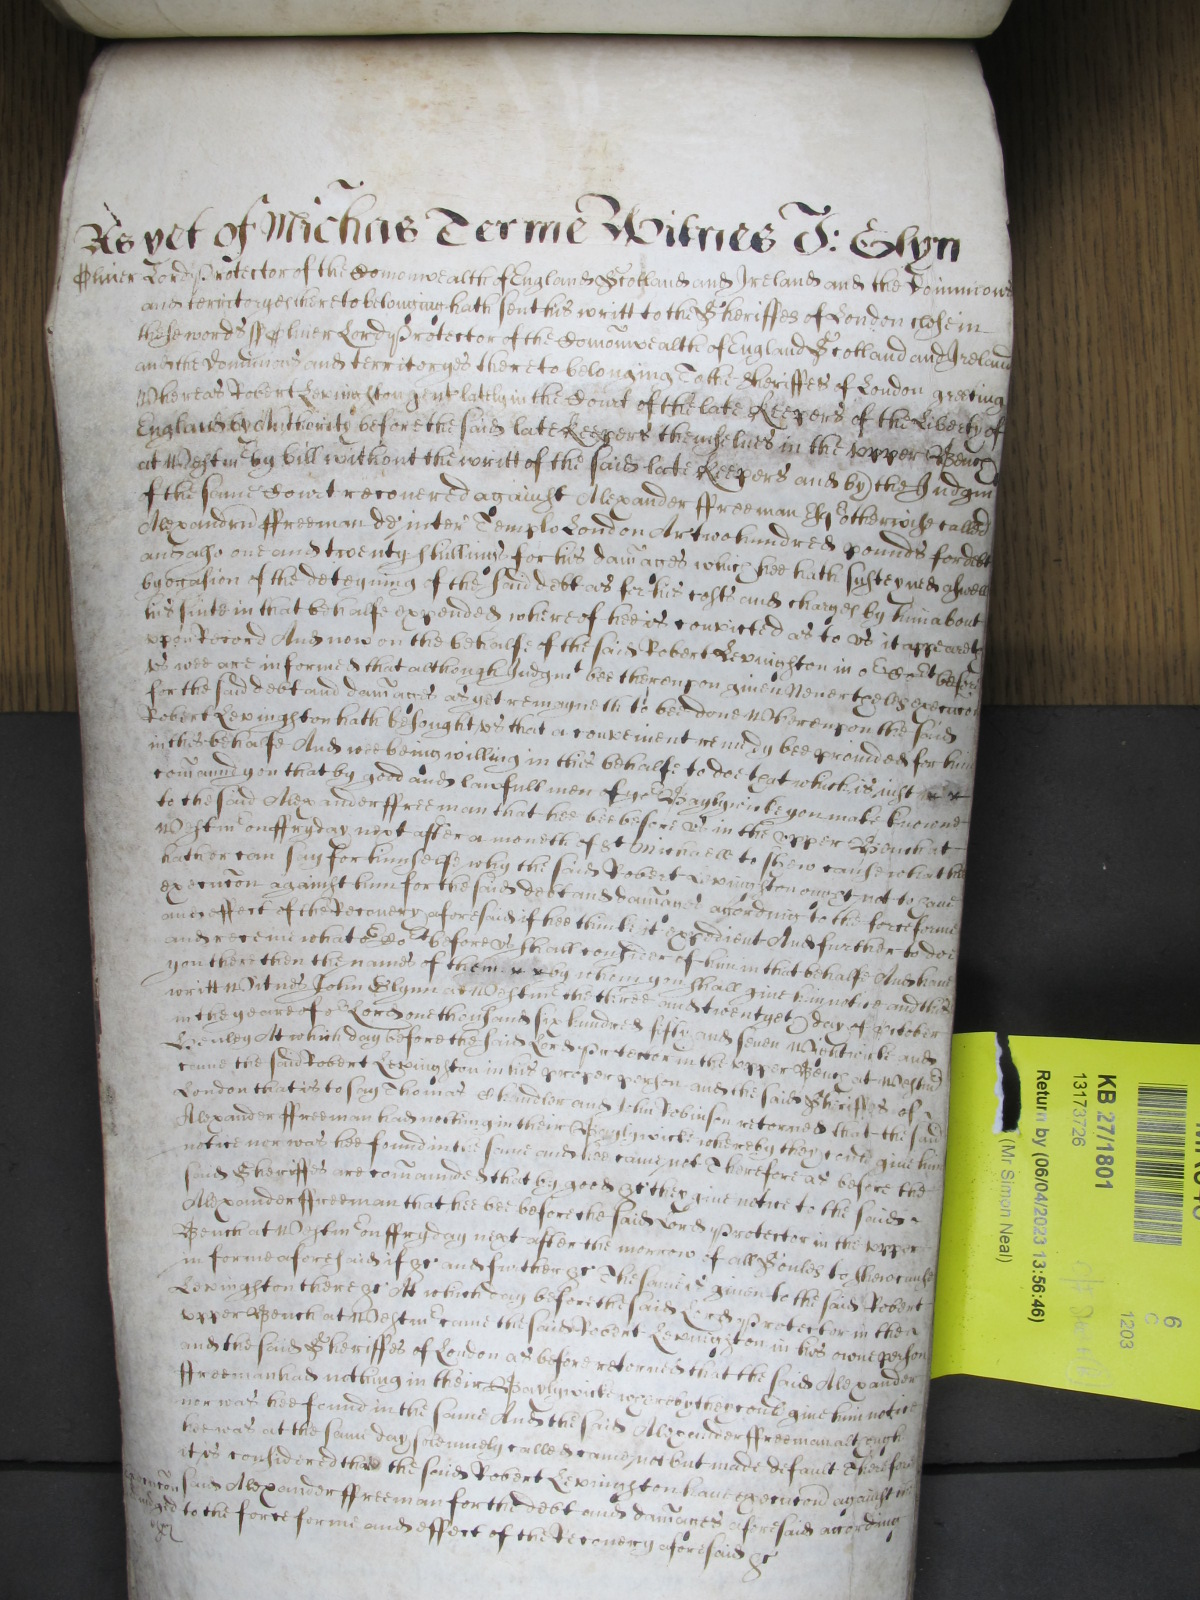 As yet of Michas Terme Witnes J: Glyn
Oliver Lord Protector of the Comonwealth of England Scotland and Ireland and the Dominions
and territoryes thereto belonging hath sent his writt to the Sheriffes of London close in
these words ss Oliver Lord Protector of the Comonwealth of England Scotland and Ireland
and the Dominions and territoryes thereto belonging To the Sheriffes of London greeting
Whereas Robert Levinghton gent lately in the Court of the late Keepers of the Liberty of
England by Authority before the said late Keepers themselves in the upper Bench
at Westmr by bill without the writt of the said late Keepers and by the Judgmt
of the same Court recovered against Alexander ffreeman Esqr otherwise called
Alexandru ffreeman de inter Templo London Ar two hundred pounds for debt
and also one and twenty shillings for his damages which hee hath susteyned aswell
by ocasion of the deteyning of the said debt as for his costs and charges by him about
his suite in that behalfe expended whereof hee is convicted as to us it appeareth
upon Record And now on the behalfe of the said Robert Levinghton in or Court before
us wee are informed that although Judgmt bee thereupon given Nevertheles execucon
for the said debt and damages as yet remayneth to bee done Whereupon the said
Robert Levinghton hath besought us that a convenient remedy bee provided for him
in this behalfe And wee being willing in this behalfe to doe that which is just
comaund you that by good and lawfull men of yor Baylywicke you make knowne
to the said Alexander ffreeman that hee bee before us in the upper Bench at
Westmr on ffryday next after a moneth of St Michaell to shew cause what hee
hath or can say for himselfe why the said Robert Levinghton ought not to have
execucon against him for the said debt and damages according to the force forme
and effect of the Recovery aforesaid if hee thinke it expedient And further to doe
and receive what or Cort before us shall consider of him in that behalfe And have
you there then the names of them by whom you shall give him notice and this
writt Witnes John Glynn at Westmr the three and twentyeth day of October
in the yeare of or Lord one thousand six hundred fifty and seven Wightwicke and
Henley At which day before the said Lord Protector in the upper Bench at Westmr
came the said Robert Levinghton in his proper person and the said Sheriffes of
London that is to say Thomas Chandler and John Robinson retorned that the said
Alexander ffreeman had nothing in their Baylywicke whereby they could give him
notice nor was hee found in the same and hee came not Therefore as before the
said Sheriffes are comaunded that by good &c they give notice to the said
Alexander ffreeman that hee bee before the said Lord Protector in the upper
Bench at Westmr on ffryday next after the morrow of all Soules to shew cause
in forme aforesaid if &c and further &c The same is given to the said Robert
Levinghton there &c At which day before the said Lord Protector in the
upper Bench at Westmr came the said Robert Levinghton in his owne person
and the said Sheriffes of London as before retorned that the said Alexander
ffreeman had nothing in their Baylywicke whereby they could give him notice
nor was hee found in the same And the said Alexander ffreeman although
hee was at the same day solemnely called came not but made default Therefore
it is considered that the said Robert Levinghton have execucon against the
execucon said Alexander ffreeman for the debt and damages aforesaid according
to the force forme and effect of the Recovery aforesaid &c
KB 27/1801
13173726
Return by (06/04/2023 13:56:46)
(Mr Simon Neal)
6
C
1203